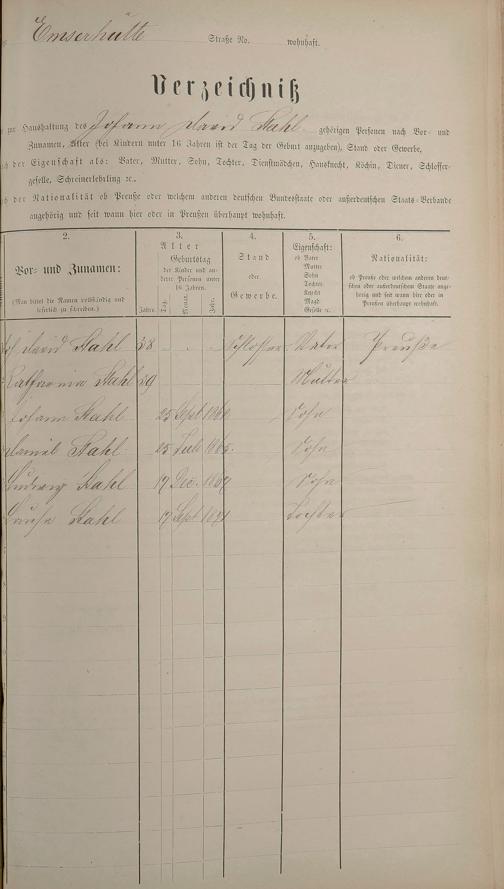 Emserhütte Straße No. wohnhaft.
Verzeichniß
zur Haushaltung des Johann David Stahl gehörigen Personen nach Vor- und
Zunamen, Alter (bei Kindern unter 16 Jahren ist der Tag der Geburt anzugeben), Stand oder Gewerbe,
der Eigenschaft als: Vater, Mutter, Sohn, Tochter, Dienstmädchen, Hausknecht, Köchin, Diener, Schlosser-
geselle, Schreinerlehrling ꝛc.
der Nationalität ob Preuße oder welchem anderen deutschen Bundesstaate oder außerdeutschen Staats-Verbande
angehörig und seit wann hier oder in Preußen überhaupt wohnhaft.
2.
Vor- und Zunamen:
(Man bittet die Namen vollständig und
leserlich zu schreiben.)
3.
Alter
Jahre.
Geburtstag
der Kinder und an-
derer Personen unter
16 Jahren.
Tag. Monat. Jahr.
4.
Stand
oder
Gewerbe.
5.
Eigenschaft:
ob Vater
Mutter
Sohn
Tochter
Knecht
Magd
Geselle ꝛc.
6.
Nationalität:
ob Preuße oder welchem anderen deut-
schen oder außerdeutschen Staate ange-
hörig und seit wann hier oder in
Preußen überhaupt wohnhaft.
David Stahl 38 Schlosser Vater Preuße
Katharina Stahl 39 Mutter
Johann Stahl 25 Sept Sohn
Daniel Stahl 25 Juli 1865. Sohn
Ludwig Stahl 17 Dec. Sohn
Louise Stahl 17 Sept 1871 Tochter